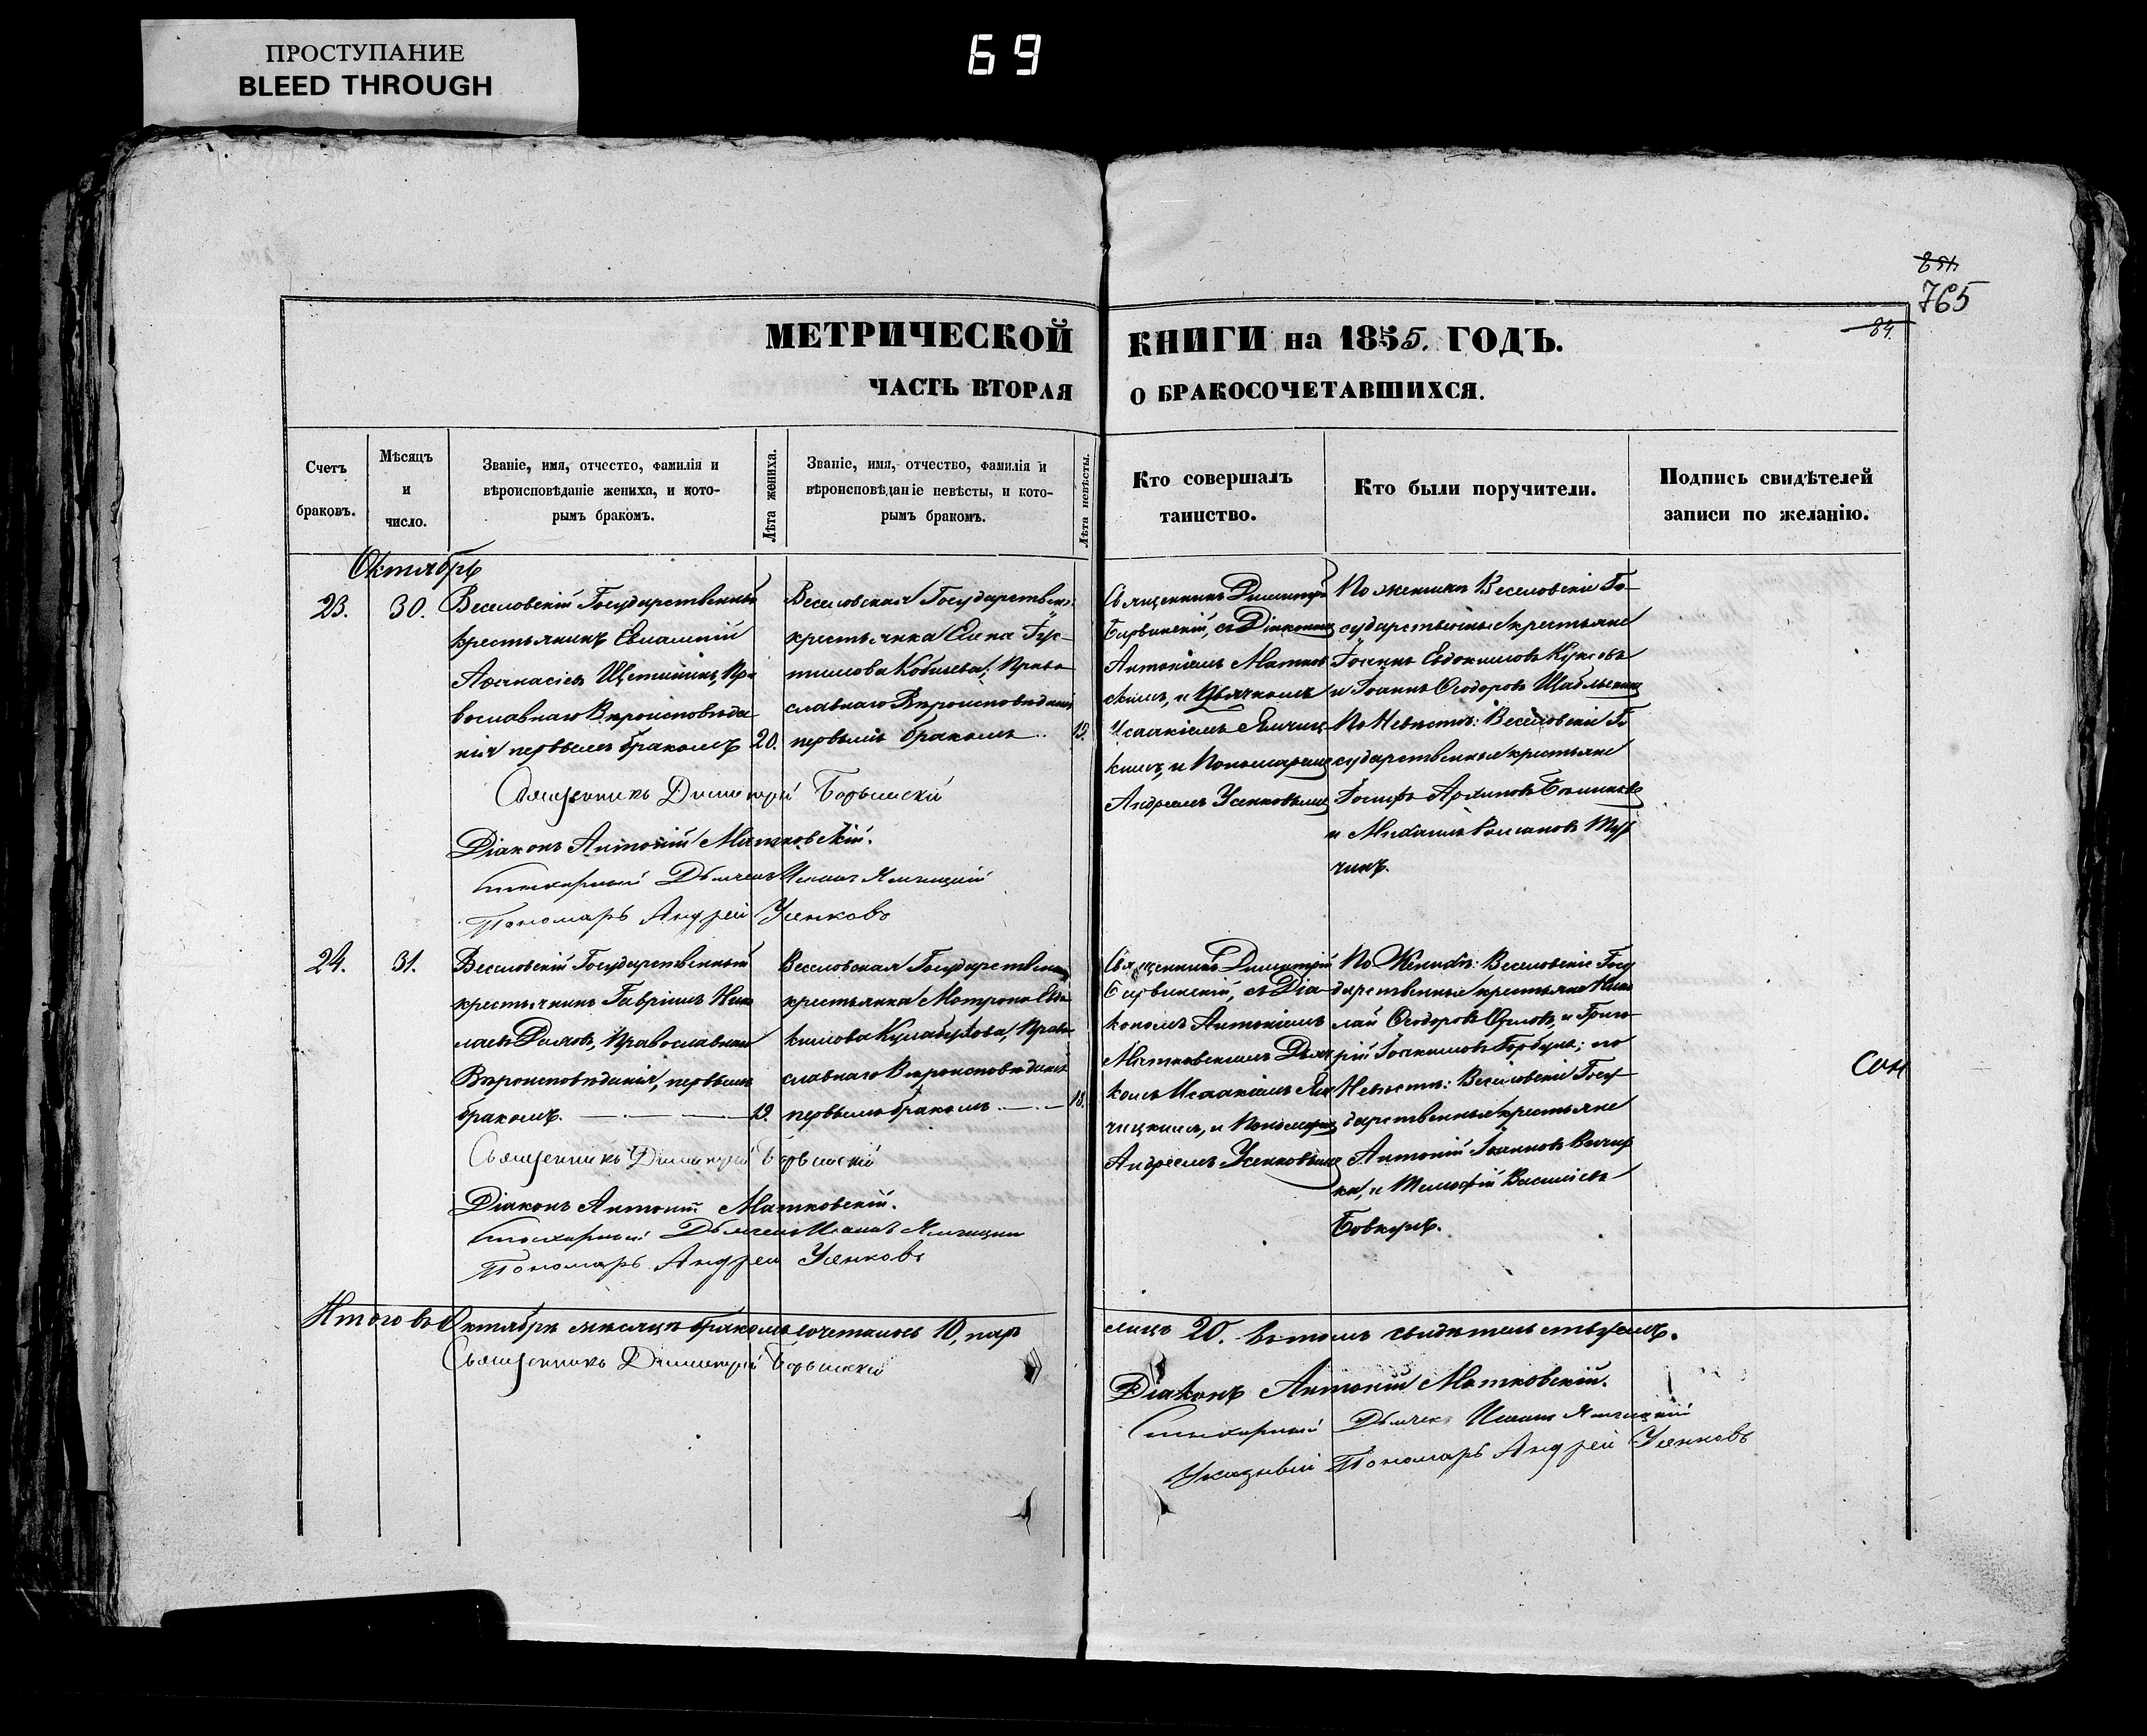 ПРОСТУПАНИЕ
BLEED THROUGH
69
765
84.
МЕТРИЧЕСКОЙ КНИГИ на 1855. ГОДЪ.
ЧАСТЬ ВТОРАЯ О БРАКОСОЧЕТАВШИХСЯ.
Счетъ
браковъ.
Мѣсяцъ
и
число.
Званіе, имя, отчество, фамилія и
вѣроисповѣданіе жениха, и кото-
рымъ бракомъ.
Лѣта жениха.
Званіе, имя, отчество, фамилія и
вѣроисповѣданіе невѣсты, и кото-
рымъ бракомъ.
Лѣта невѣсты.
Кто совершалъ
таинство.
Кто были поручители.
Подпись свидѣтелей
записи по желанію.
Октябрь
23.
30.
Веселовскій Государственный
крестьянинъ Евлампій
Аѳанасіевъ Щетининъ, Пра
вославнаго Вѣроисповѣда
нія первымъ бракомъ
20.
Веселовская Государствен:
крестьянка Елена
Кобилева; Право
славнаго Вѣроисповѣданія
первымъ бракомъ
19.
Священникъ Димитрій
съ Діакономъ
Антоніемъ Матков
скимъ, и Дьячкомъ
Исаакіемъ Ямчиц
кимъ, и Пономаремъ
Андреемъ Усенковымъ
По женихѣ Веселовскіе Го-
сударственные крестьяне
Іоаннъ Евдокимовъ
и Іоаннъ Ѳеодоровъ
По Невѣстѣ: Веселовскіе Го
сударственные крестьяне
Іосифъ Архиповъ
и Михаилъ Романовъ
чинъ.
Священникъ Димитрій
Діаконъ Антоній Матковскій.
Стихарный Дьячекъ Исаакъ Ямчицкій
Пономарь Андрей Усенковъ
24.
31.
Веселовскій Государственный
крестьянинъ Гавріилъ Нико
лаевъ Православнаго
Вѣроисповѣданія, первымъ
бракомъ.
19.
Веселовская Государственная
крестьянка Матрона Евдо
кимова Кулабухова, Право
славнаго Вѣроисповѣданія
первымъ бракомъ
18.
Священникъ Димитрій
съ Діа-
кономъ Антоніемъ
Матковскимъ Дьяч
комъ Исаакіемъ Ям
чицкимъ, и Пономаремъ
Андреемъ Усенковымъ
По Женихѣ: Веселовскіе Госу
дарственные крестьяне Нико
лай Ѳеодоровъ Орловъ, и Григо
рій Іоакимовъ Горбуль; по
Невѣстѣ: Веселовскіе Госу
дарственные крестьяне
Антоній Іоанновъ
ка, и Тимоѳій Василіевъ
Бовкунъ.
Священникъ Димитрій
Діаконъ Антоній Матковскій.
Стихарный Дьячекъ Исаакъ Ямчицкій
Пономарь Андрей Усенковъ
Итого въ Октябрѣ мѣсяцѣ бракомъ сочеталось 10, паръ
лицъ 20. въ томъ свидѣтельствуемъ.
Священникъ Димитрій
Діаконъ Антоній Матковскій.
Стихарный Дьячекъ Исаакъ Ямчицкій
Указный Пономарь Андрей Усенковъ